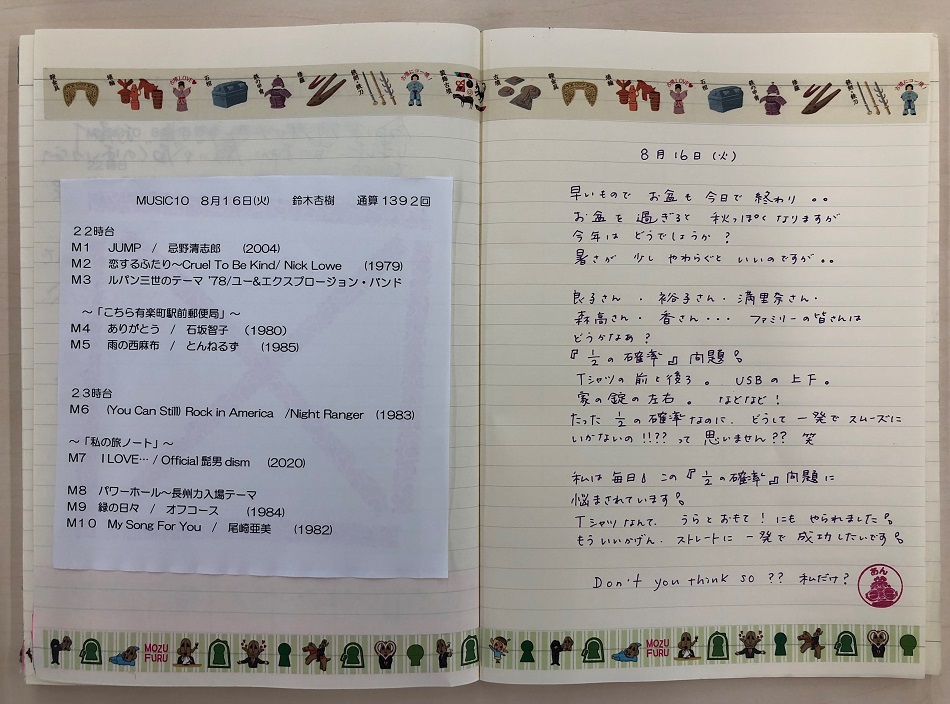 お墓LOVE♥
石棺
鉄の甲冑
埴輪
MUSIC10　8月16日(火)　鈴木杏樹　通算1392回
22時台
M1　JUMP　/　忌野清志郎　(2004)
M2　恋するふたり～Cruel To Be Kind/ Nick Lowe　(1979)
M3　ルパン三世のテーマ '78/ユー&エクスプロージョン・バンド
～「こちら有楽町駅前郵便局」～
M4　ありがとう　/　石坂智子　(1980)
M5　雨の西麻布　/　とんねるず　(1985)
23時台
M6　(You Can Still) Rock in America　/Night Ranger　(1983)
～「私の旅ノート」～
M7　I LOVE… / Official髭男dism　(2020)
M8　パワーホール～長州力入場テーマ
M9　緑の日々　/　オフコース　(1984)
M10　My Song For You　/　尾崎亜美　(1982)
MOZU
FURU
8月16日(火)
早いもので お盆も今日で 終わり 。。
お盆を 過ぎると 秋っぽく なりますが
今年は どうでしょうか？
暑さが 少し やわらぐと いいのですが 。。
良子さん ・ 裕子さん ・ 満里奈さん ・
森高さん ・ 香さん ・・・ ファミリーの皆さんは
どうかなあ？
『 1/2 の 確率 』 問題
Tシャツの 前と後ろ 。 USBの 上下 。
家の錠の左右 。 などなど！
たった 1/2 の 確率 なのに、 どうして 一発で スムーズに
いかないの !!?? って 思いません?? 笑
私は 毎日 この『 1/2 の確率 』問題に
悩まされています
Tシャツなんて、 うらとおもて！ にも やられました
もういいかげん、 ストレートに 一発で 成功したいです
Don't you think so ?? 私だけ？
あん
MOZU
FURU